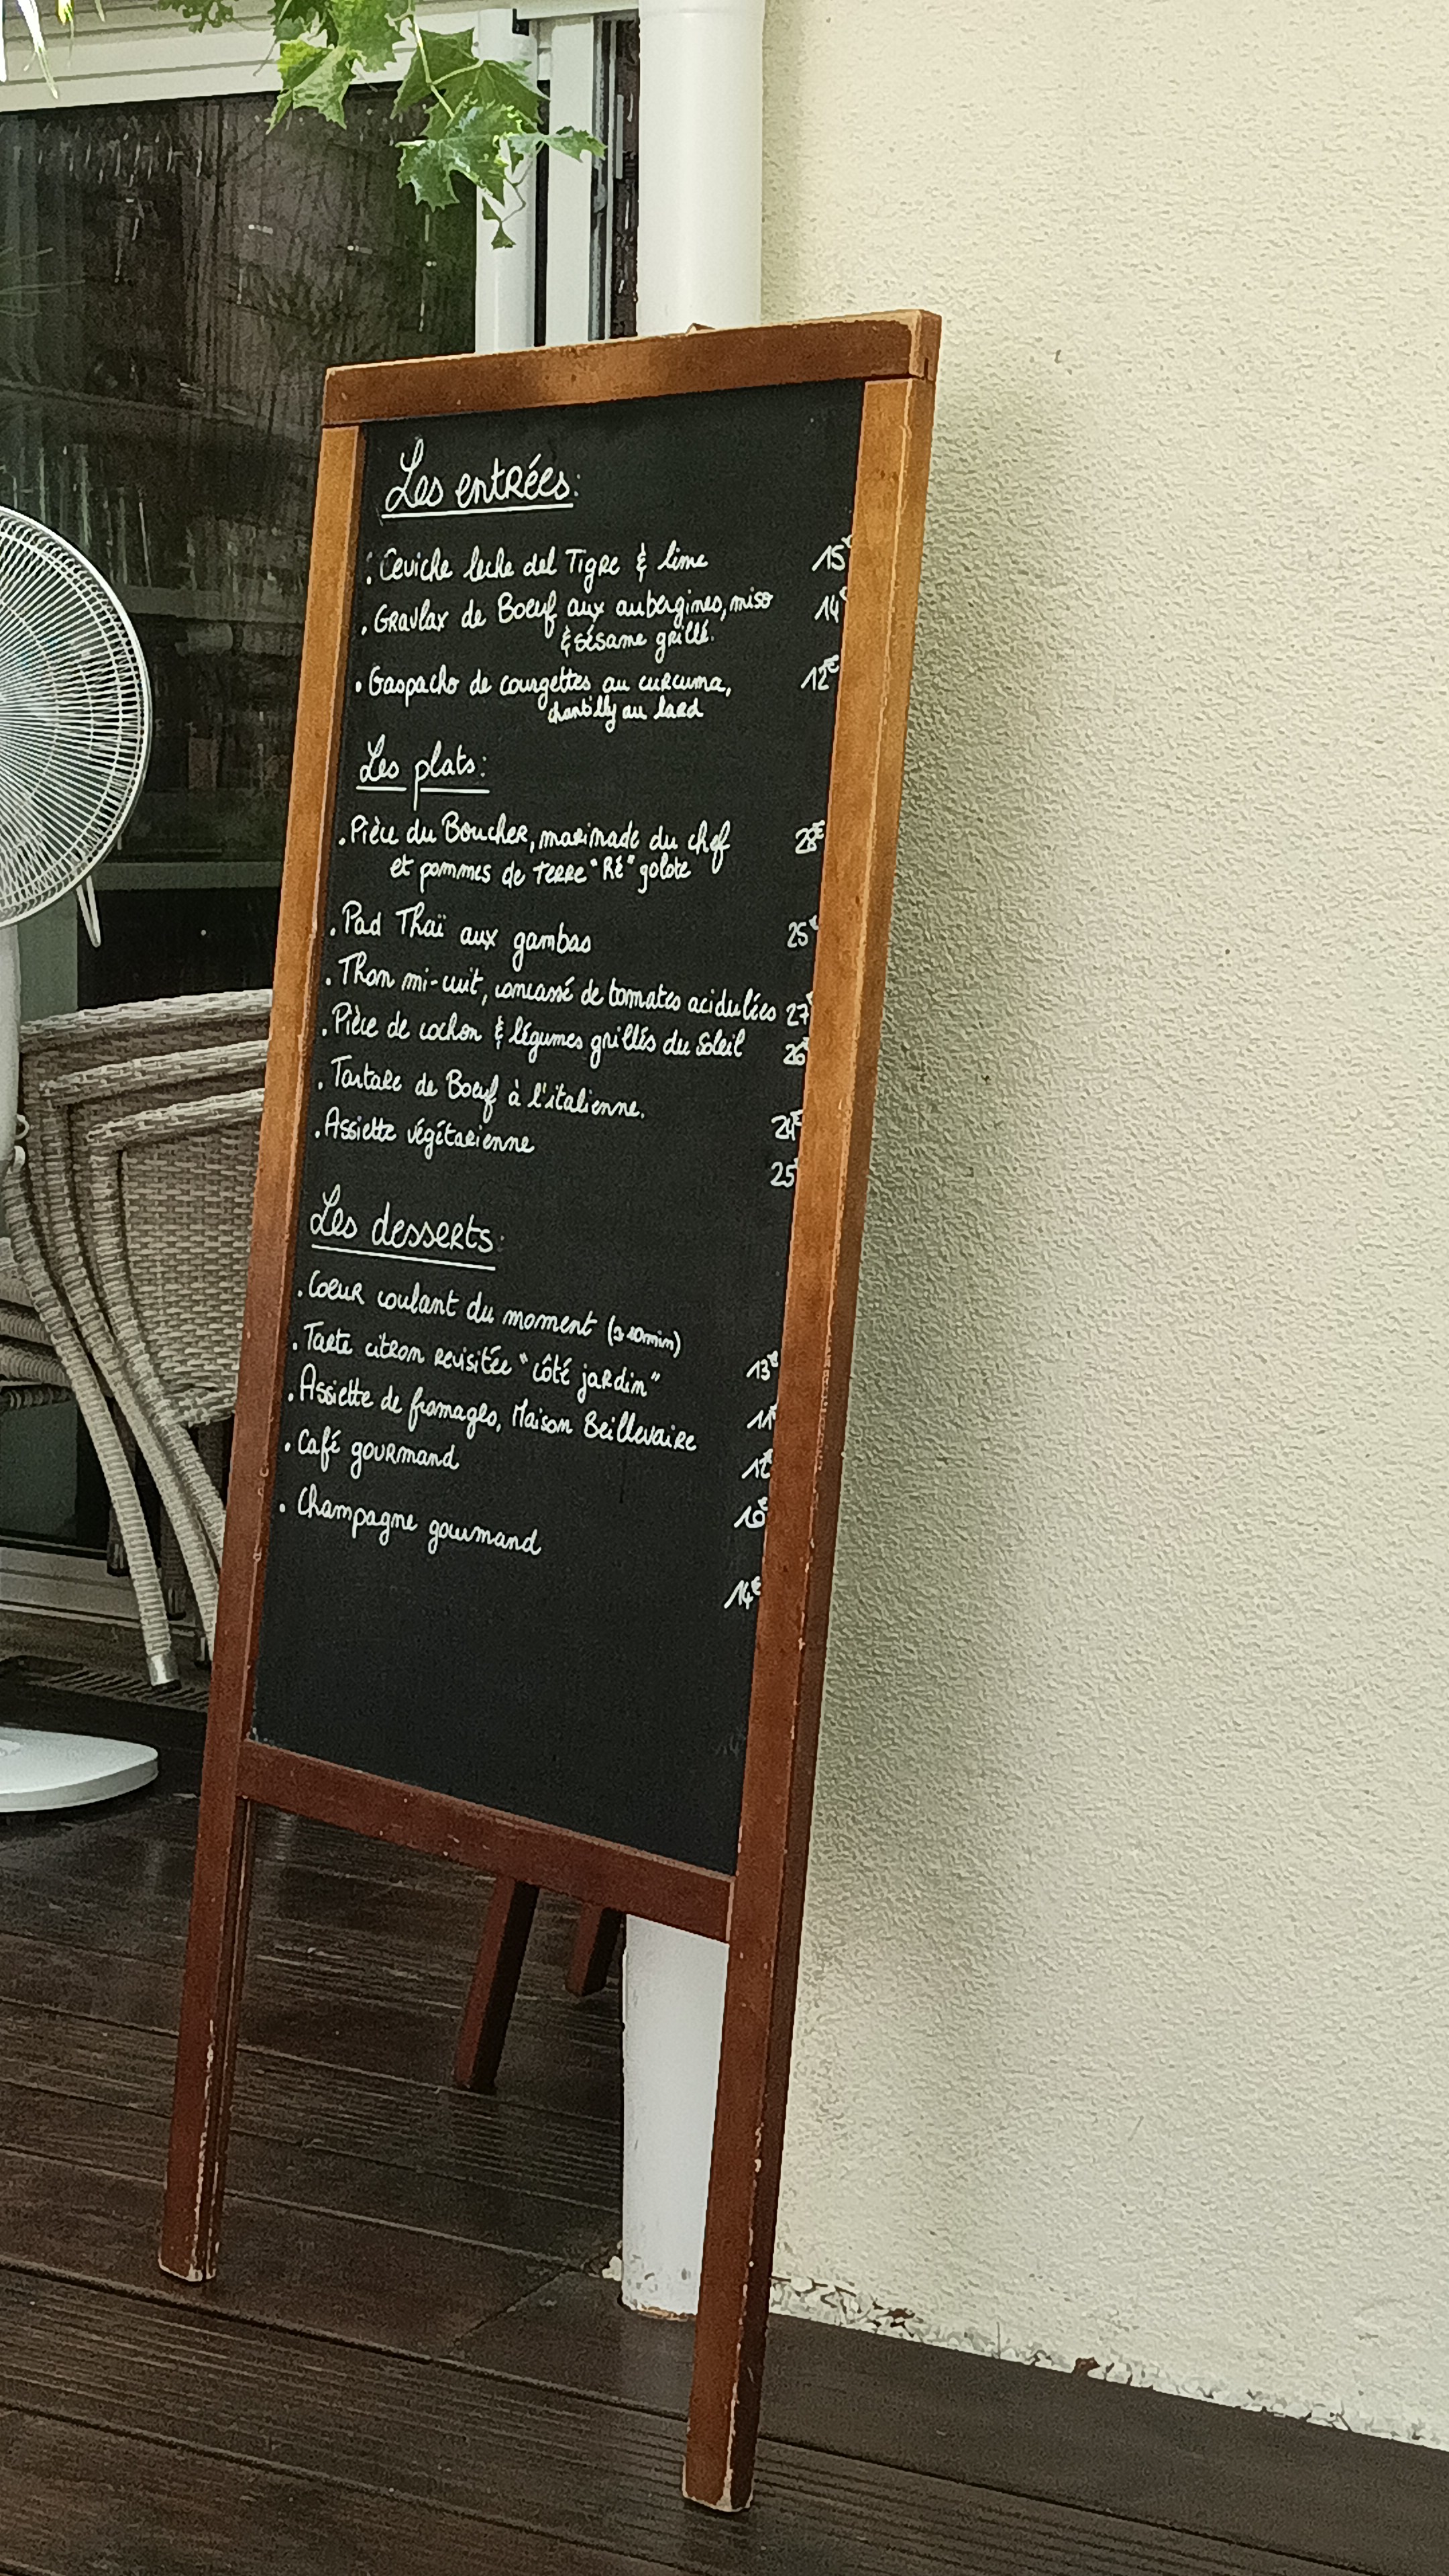 Les entrées:
. Ceviche leche del Tigre & lime 15€
. Gravlax de Boeuf aux aubergines, miso 14€
& sésame grillé.
. Gaspacho de courgettes au curcuma, 12€
chantilly au lard
Les plats:
. Pièce du Boucher, marinade du chef 28€
et pommes de terre "Ré" golote
. Pad Thaï aux gambas 25€
. Thon mi-cuit, concassé de tomates acidulées 27€
. Pièce de cochon & légumes grillés du Soleil 26€
. Tartare de Boeuf à l'italienne. 24€
. Assiette végétarienne 25€
Les desserts:
. Coeur coulant du moment ( 10min) 13€
. Tarte citron revisitée "côté jardin" 11€
. Assiette de fromages, Maison Beillevaire 12€
. Café gourmand 10€
. Champagne gourmand 14€